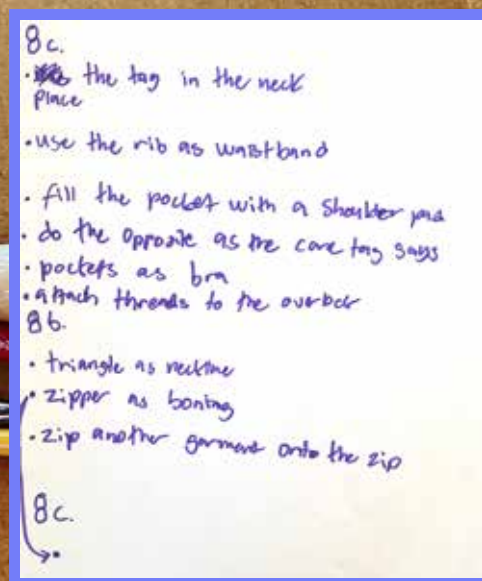 8c.
• the tag in the neck
place
• use the rib as waistband
• fill the pocket with a shoulder pad
• do the opposite as the care tag says
• pockets as bra
• attach threads to the
8b.
• triangle as neckline
• zipper as boning
• zip another garment onto the zip
8c.
•